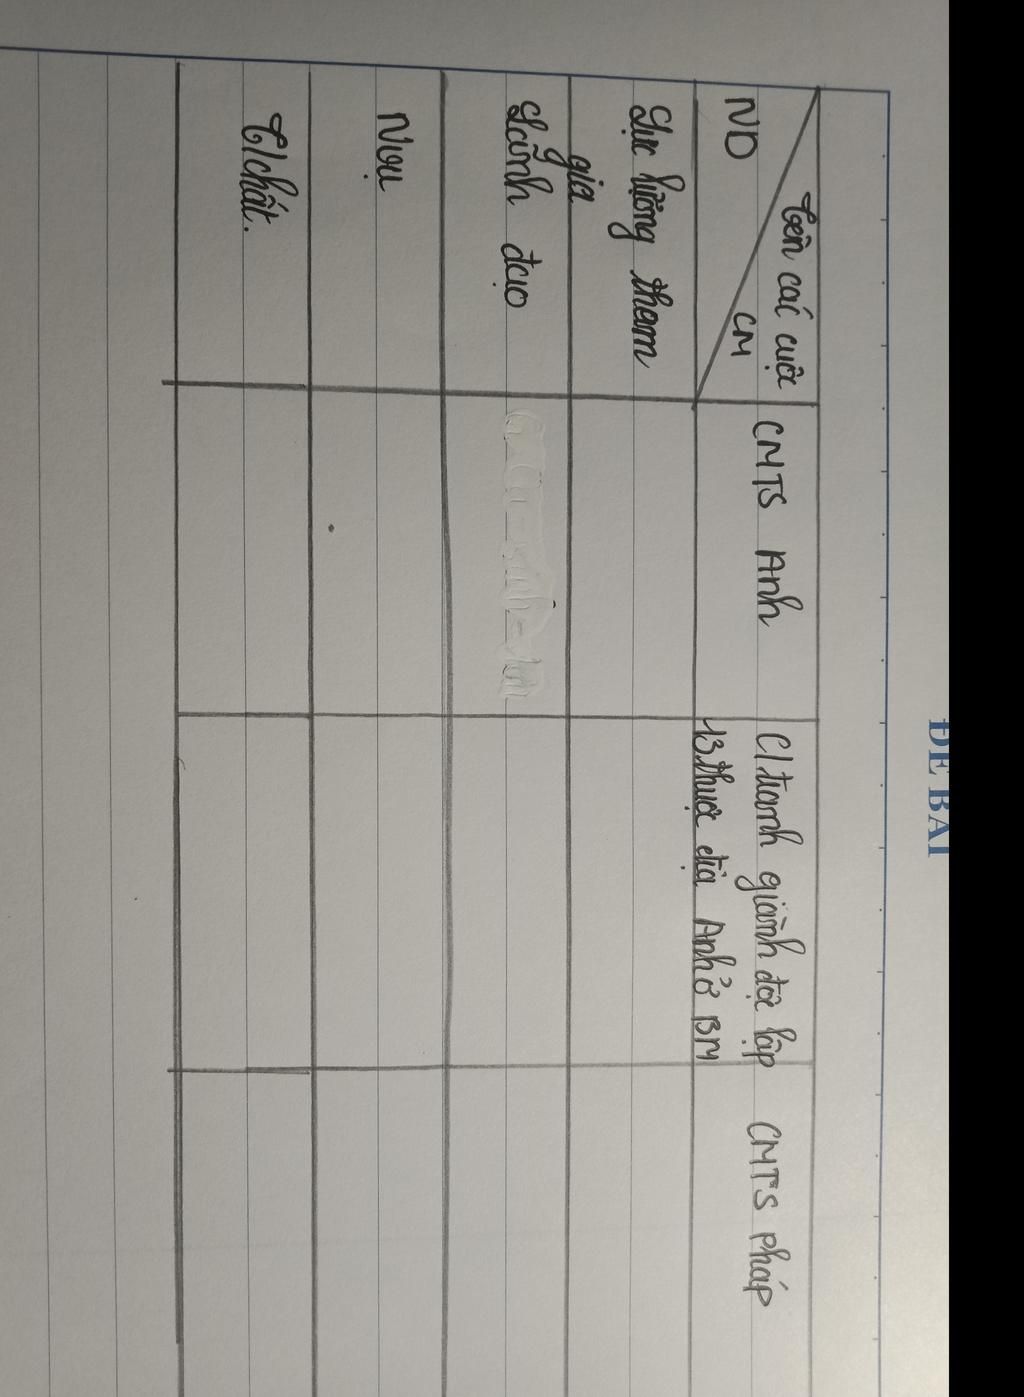 ĐỀ BÀI
Tên các cuộc
ND CM
CMTS Anh
C/tranh giành độc lập
13 thuộc địa Anh ở BM
CMTS Pháp
Lực lượng tham
gia
Lãnh đạo
N/vụ
T/chất.